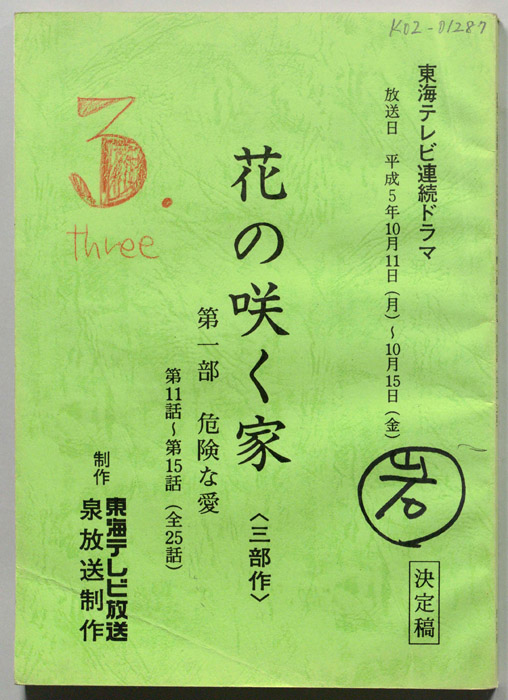 K02-01287
東海テレビ連続ドラマ
放送日 平成5年10月11日(月)〜10月15日(金)
岩
決定稿
花の咲く家
〈三部作〉
第一部 危険な愛
第11話〜第15話(全25話)
3.
three
制作
東海テレビ放送
泉放送制作